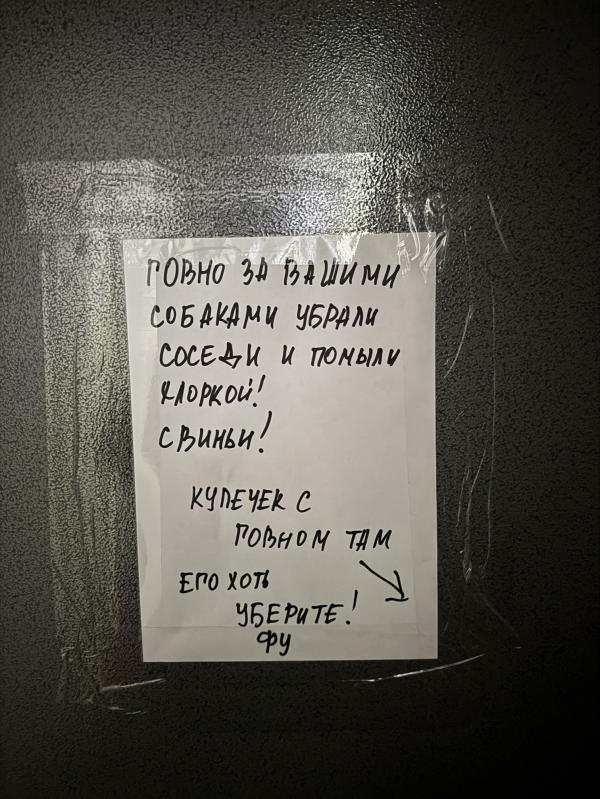 ГОВНО ЗА ВАШИМИ
СОБАКАМИ УБРАЛИ
СОСЕДИ И ПОМЫЛИ
ХЛОРКОЙ!
СВИНЬИ!
КУЛЕЧЕК С
ГОВНОМ ТАМ
ЕГО ХОТЬ
УБЕРИТЕ!
ФУ